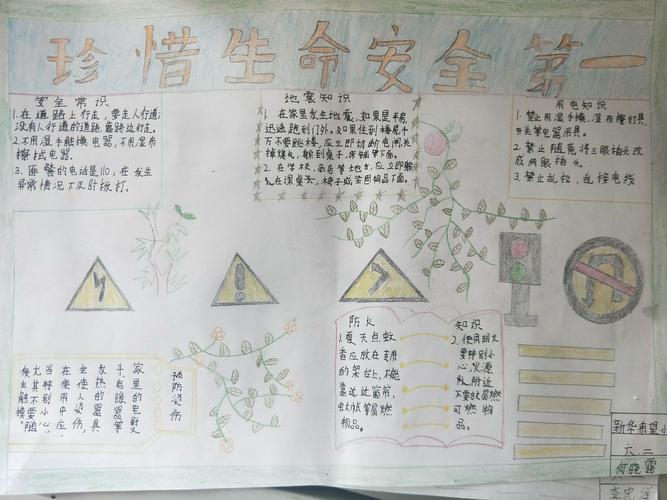 珍惜生命安全第一
安全常识
1.在道路上行走，要走人行道，
没有人行道的道路，靠路边行走。
2.不用湿手触摸电器，不用湿布
擦拭电器。
3.匪警的电话是110，在发生
异常情况下及时拨打。
地震知识
1.在家里发生地震，如果是平房，
迅速跑到门外。如果住到楼房，千
万不要跳楼，应立即切断电闸，关
掉煤气，
2.在学校、商店等地方，应立即躲
用电知识
1.禁止用湿手摸、湿布擦灯具、
开关等电器用具。
2.禁止随意将三眼插头改
成两眼插头。
3.禁止乱拉，乱接电线
防火
1.夏天点蚊
香应放在专用
的架台上，不能
靠近窗帘、
蚊帐等易燃
物品。
知识
2.使用明火
要特别小
心，火源
附近
不要放易燃
可燃物
品。
预防烫伤
家里的电熨
斗、电暖器等
发热的器具
会使人烫伤，
在使用中应
当特别小心，
尤其不要随
便触摸。
新华希望小
六、二
何晓露